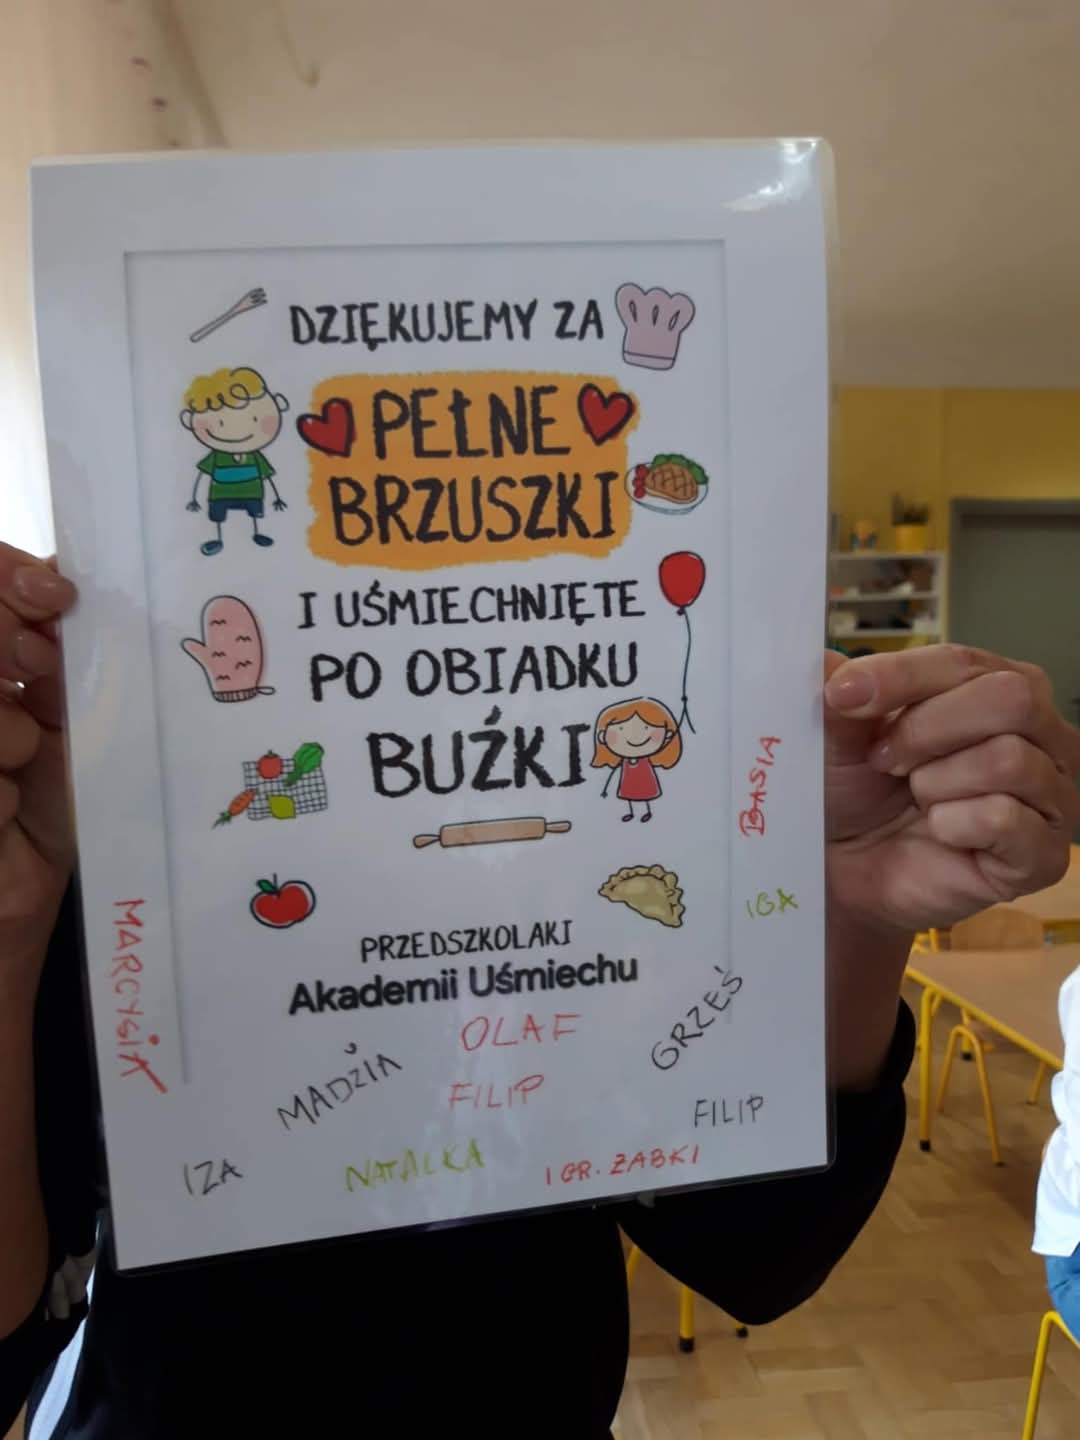 DZIĘKUJEMY ZA
PEŁNE
BRZUSZKI
I UŚMIECHNIĘTE
PO OBIADKU
BUŹKI
PRZEDSZKOLAKI
Akademii Uśmiechu
BASIA
IGA
MARCYSIA
OLAF
GRZEŚ
MADZIA
FILIP
FILIP
IZA
NATALKA
I GR. ŻABKI